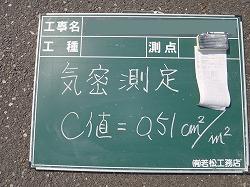 工事名
工種 測点
気密測定
C値=0.51cm²/m²
㈲若松工務店